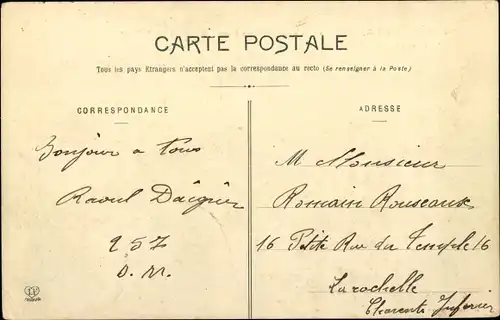 CARTE POSTALE
Tous les pays Étrangers n'acceptent pas la correspondance au recto (Se renseigner à la Poste)
CORRESPONDANCE
Bonjour a Tous
Raoul
257
D. M.
ADRESSE
M Monsieur
Romain Rouseaux
16 Petite Rue du Temple 16
La rochelle
Charente Inferieur